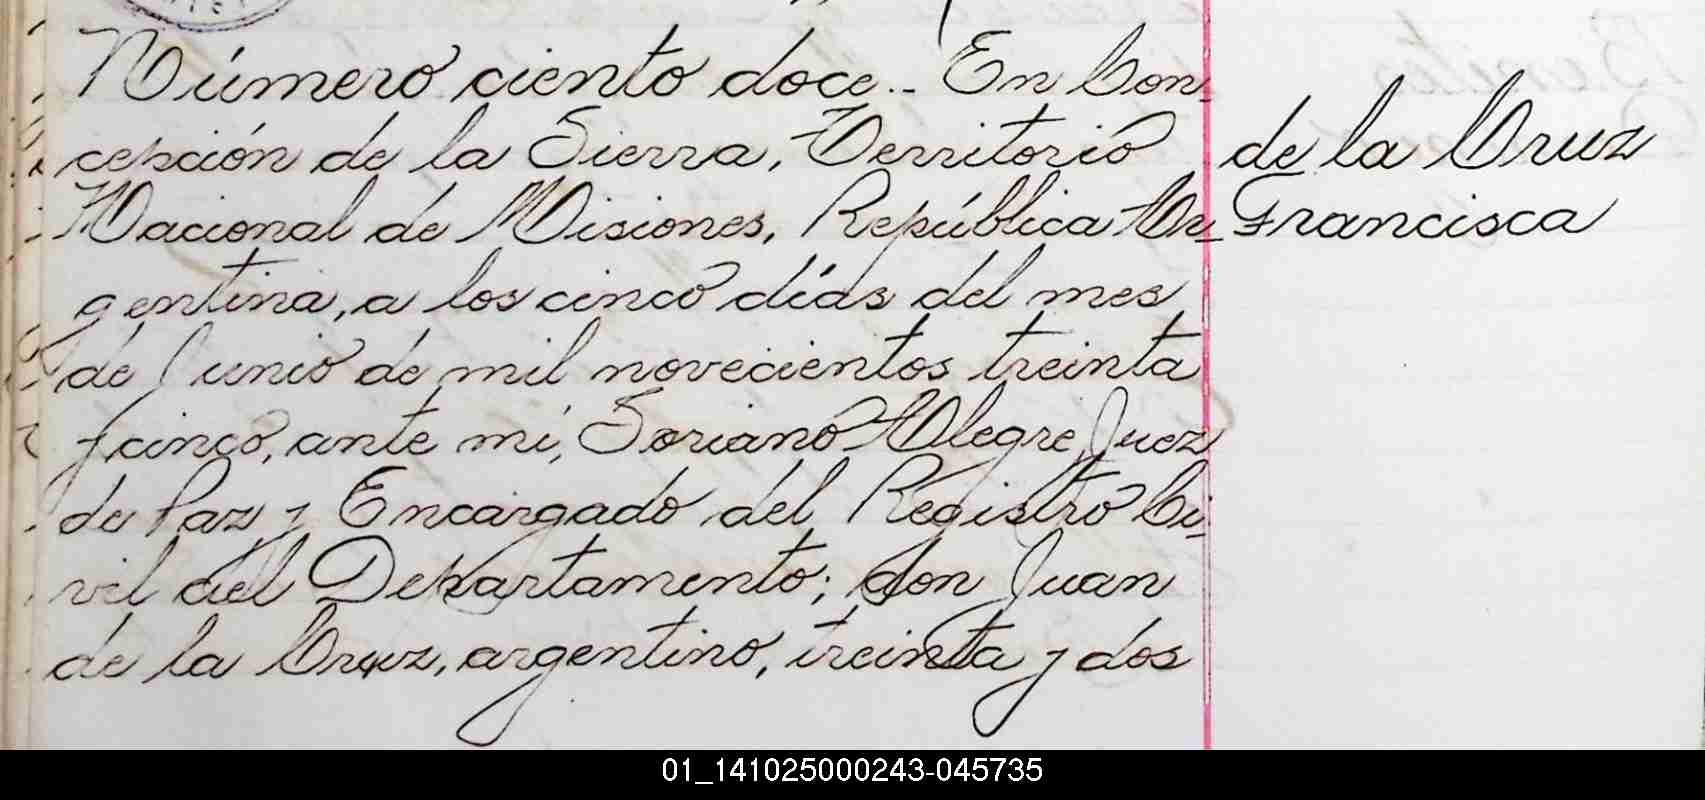 Número ciento doce.. En Con-
cepción de la Sierra, Territorio
Nacional de Misiones, República Ar-
gentina, a los cinco días del mes
de Junio de mil novecientos treinta
y cinco, ante mí, Soriano Alegre, Juez
de Paz y Encargado del Registro Ci-
vil del Departamento; don Juan
de la Cruz, argentino, treinta y dos
de la Cruz
Francisca
01_141025000243-045735